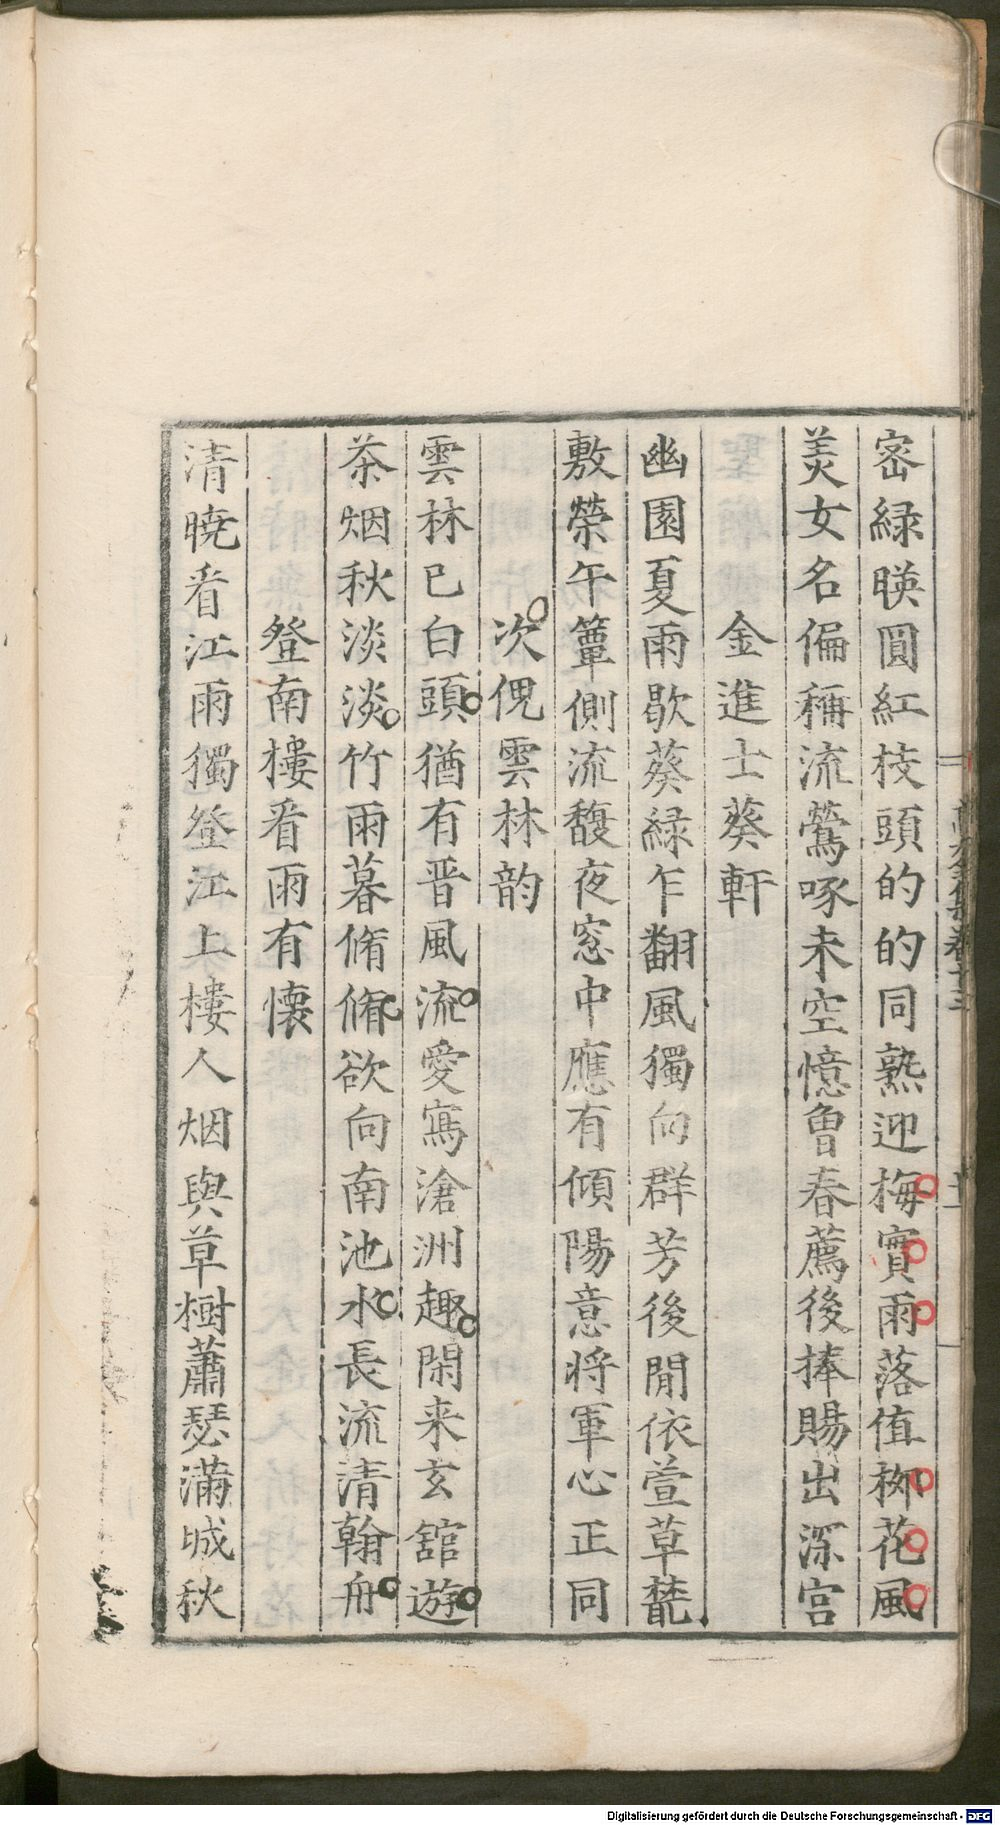 密緑暎圓紅枝頭的的同熟迎梅實雨落值栁花風
羙女名偏稱流鶯啄未空憶曾春薦後捧賜出深宫
金進士葵軒
幽園夏雨歇葵緑乍翻風獨向群芳後閒依萱草藂
敷榮午簟側流馥夜窓中應有傾陽意将軍心正同
次倪雲林韵
雲林已白頭猶有晋風流愛寫滄洲趣閑来玄舘遊
茶烟秋淡淡竹雨暮脩脩欲向南池水長流清翰舟
登南樓看雨有懐
清曉看江雨獨登江上樓人烟與草樹蕭瑟滿城秋
Digitalisierung gefördert durch die Deutsche Forschungsgemeinschaft - DFG